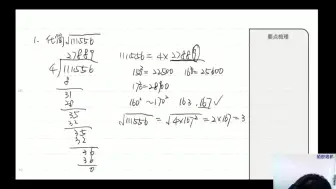 1. 化简√111556
27889
4√111556
8
31
28
35
32
35
32
36
36
0
111556=4×27889
150²=22500 160²=25600
170²=28900
160²~170² 163.167✓
√111556=√4×167²=2×167=3
重点梳理